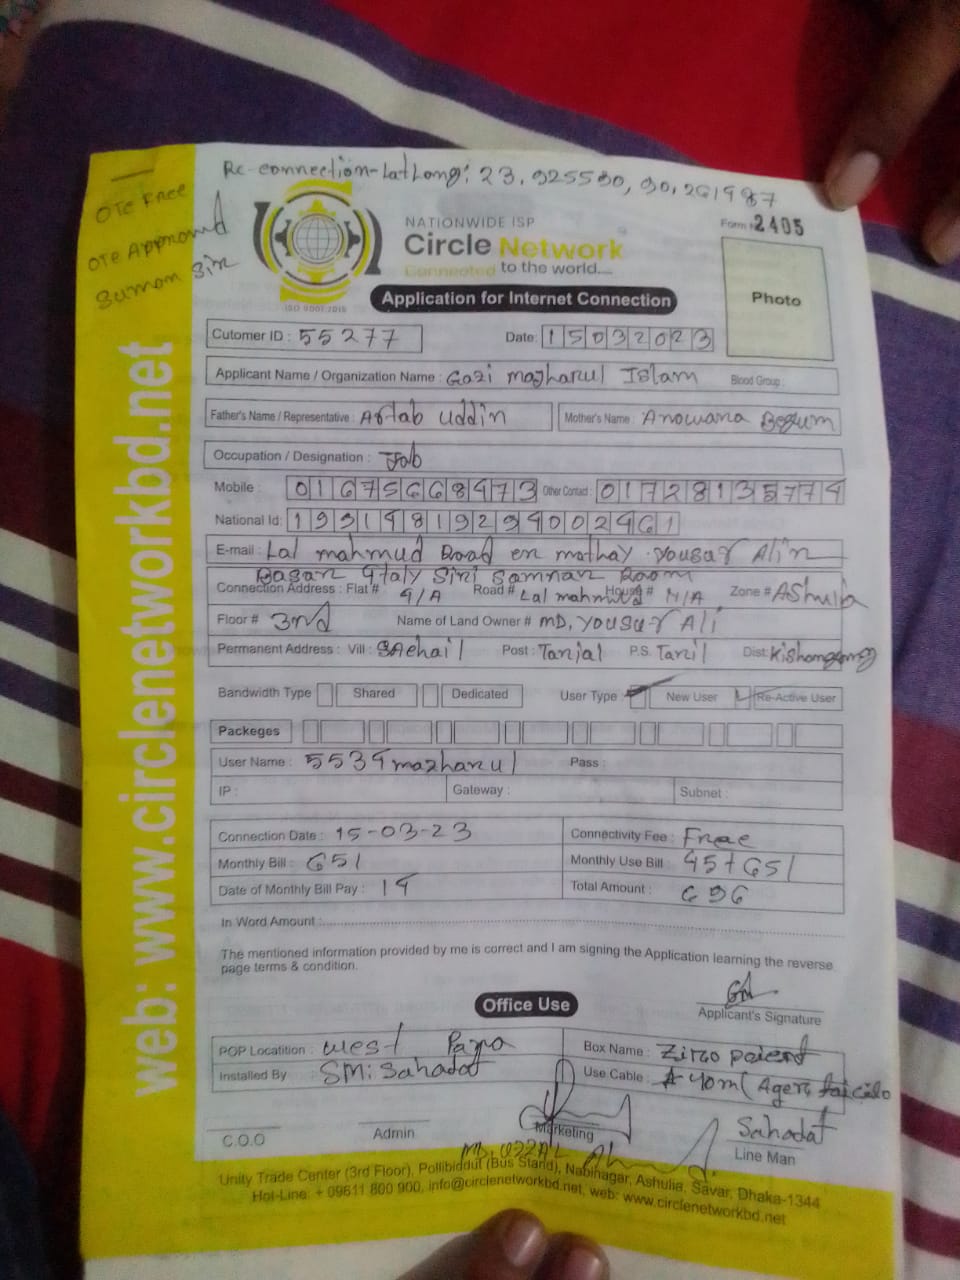 Re-connection-LatLong: 23.925580, 90.261987
OTC Free
OTC Approved
Sumon Sir
NATIONWIDE ISP
Circle Network
Connected to the world....
ISO 9001:2015
Form # 2405
Application for Internet Connection
Photo
Cutomer ID : 55277 Date: 15032023
Applicant Name / Organization Name : Gazi mazharul Islam Blood Group :
Father's Name / Representative : Aftab uddin Mother's Name : Anowara Begum
Occupation / Designation : Job
Mobile : 01675668473 Other Contact : 01728135774
National Id: 19914819294002461
E-mail : Lal mahmud Road mathay yousuf Alir
Basar Room
Connection Address : Flat # 4/A Road # Lal mahmud House # N/A Zone # Ashulia
Floor # 3rd Name of Land Owner # MD, yousuf Ali
Permanent Address : Vill : Post : Tarijal P.S. Taril Dist: Kishoregonj
Bandwidth Type Shared Dedicated User Type New User Re-Active User
Packeges
User Name : 5534mazharul Pass :
IP : Gateway : Subnet :
Connection Date : 15-03-23 Connectivity Fee : Free
Monthly Bill : 651 Monthly Use Bill : 45+651
Date of Monthly Bill Pay : 14 Total Amount : 696
In Word Amount :
The mentioned information provided by me is correct and I am signing the Application learning the reverse
page terms & condition.
Applicant's Signature
Office Use
POP Locatition : west Para Box Name : Zirao poient
Installed By SM: Sahadat Use Cable : 40m (Ager
C.O.O Admin Marketing Sahadat
Line Man
Unity Trade Center (3rd Floor), Pollibiddut (Bus Stand), Nabinagar, Ashulia, Savar, Dhaka-1344
Hot-Line: + 09611 800 900, info@circlenetworkbd.net, web: www.circlenetworkbd.net
web: www.circlenetworkbd.net